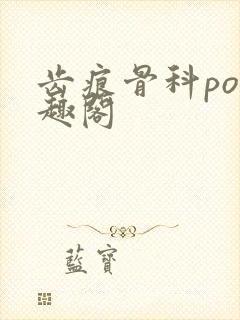 齿痕骨科po
趣阁
藍寶